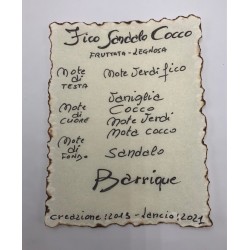 Fico Sandalo Cocco
FRUTTATA - LEGNOSA
Note di TESTA Note Verdi fico
Note di CUORE Vaniglia
Cocco
Note Verdi
Nota cocco
Note di FONDO Sandalo
Barrique
creazione: 2013 - lancio: 2021